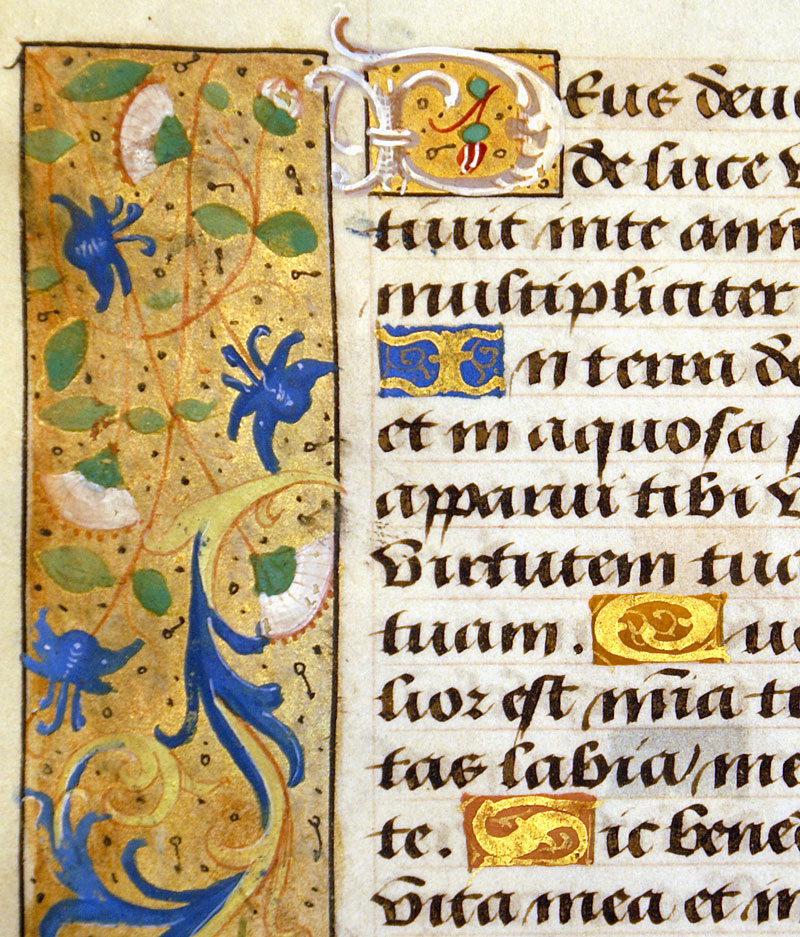 Deus deu
de luce v
tiuit in te ani
multipliciter
In terra de
et in aquosa s
apparui tibi v
virtutem tua
tuam. Qu
lior est mia te
tas labia me
te. Sic bened
vita mea et in